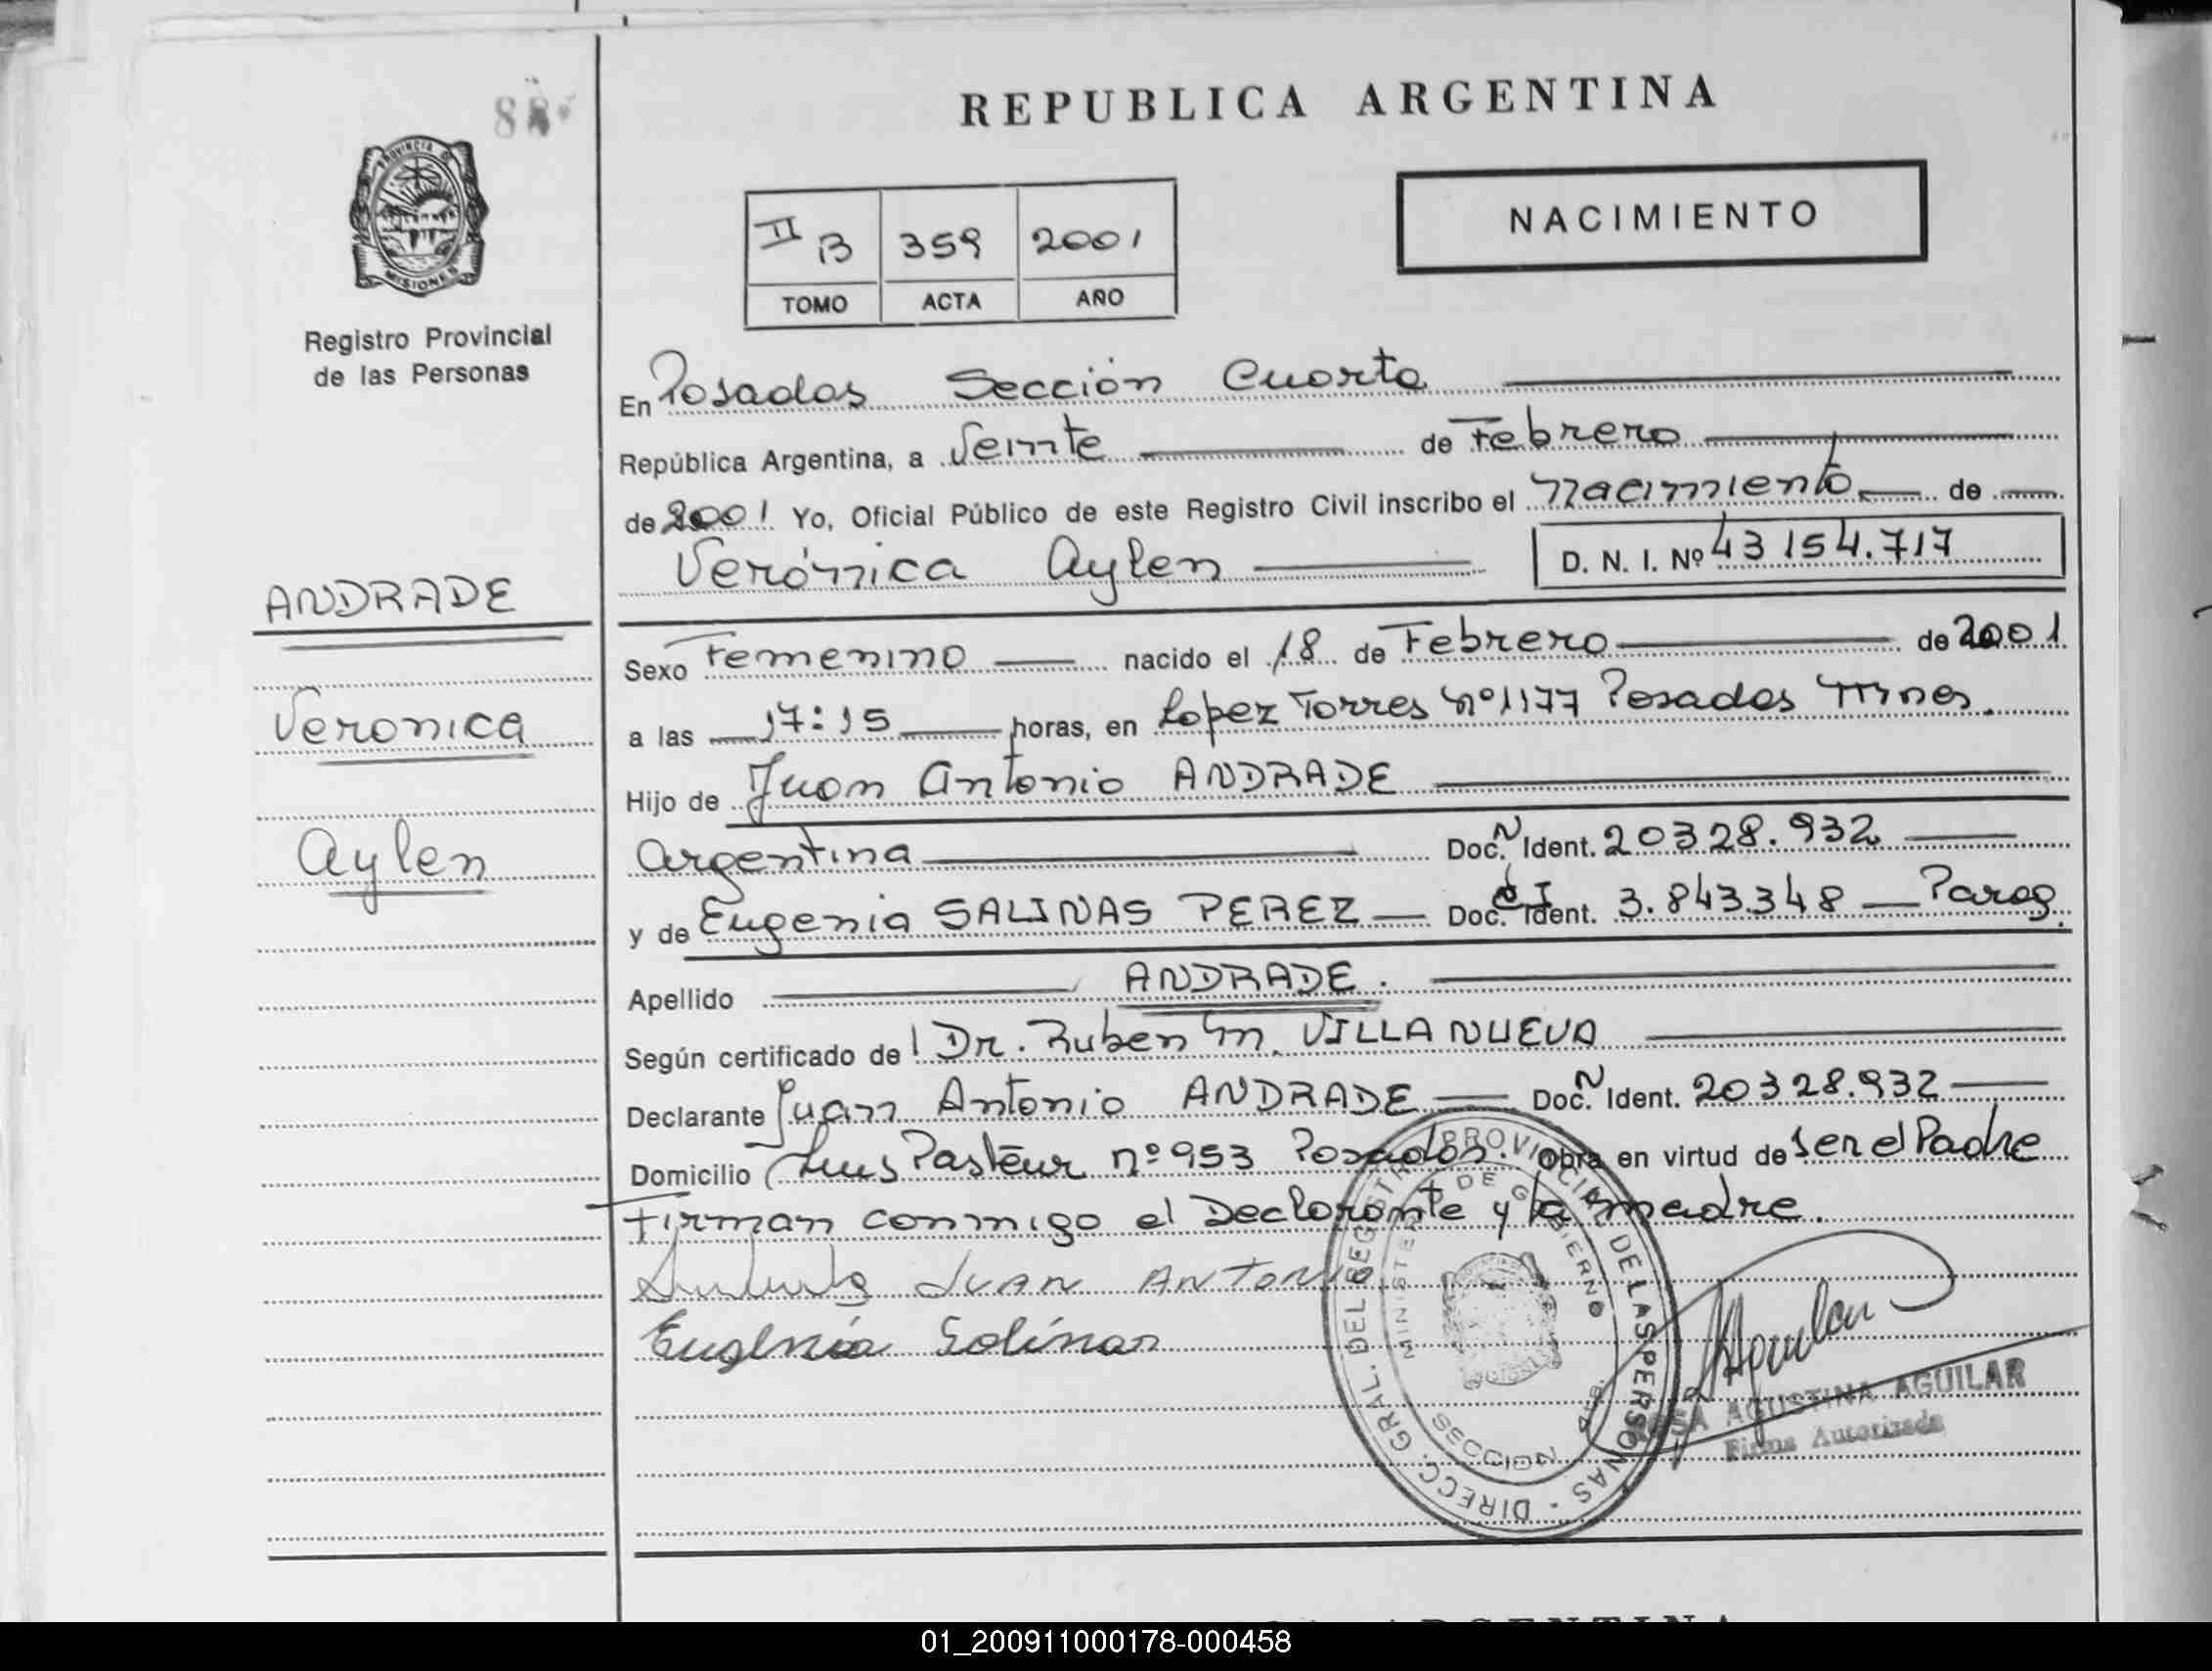 REPUBLICA ARGENTINA
PROVINCIA DE
MISIONES
Registro Provincial
de las Personas
II B 359 2001
TOMO ACTA AÑO
NACIMIENTO
En Posadas Sección Cuarta
República Argentina, a Veinte de Febrero
de 2001 Yo, Oficial Público de este Registro Civil inscribo el nacimiento de
Verónica Aylen D. N. I. Nº 43 154.717
ANDRADE
Veronica
Aylen
Sexo Femenino nacido el 18 de Febrero de 2001
a las 17:15 horas, en Lopez Torres Nº 1177 Posadas Mnes.
Hijo de Juan Antonio ANDRADE
Argentina Doc. N Ident. 20328.932
y de Eugenia SALINAS PEREZ Doc. Ident. C I 3.843.348 Parag.
Apellido ANDRADE.
Según certificado de l Dr. Ruben M. VILLANUEVA
Declarante Juan Antonio ANDRADE Doc. N Ident. 20328.932
Domicilio Luis Pasteur nº 953 Posadas. Obra en virtud de ser el Padre
Firman conmigo el Declarante y la madre.
JUAN ANTONIO
Eugenia Salinas
DIRECC. GRAL. DEL REGISTRO PROVINCIAL DE LAS PERSONAS
MINISTERIO DE GOBIERNO
SECCION
ROSA AGUSTINA AGUILAR
Firma Autorizada
01_200911000178-000458